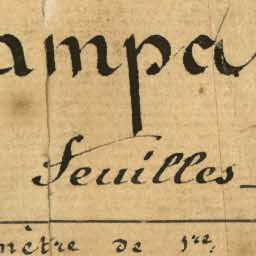 ampa
Feuilles
mètre de 1re